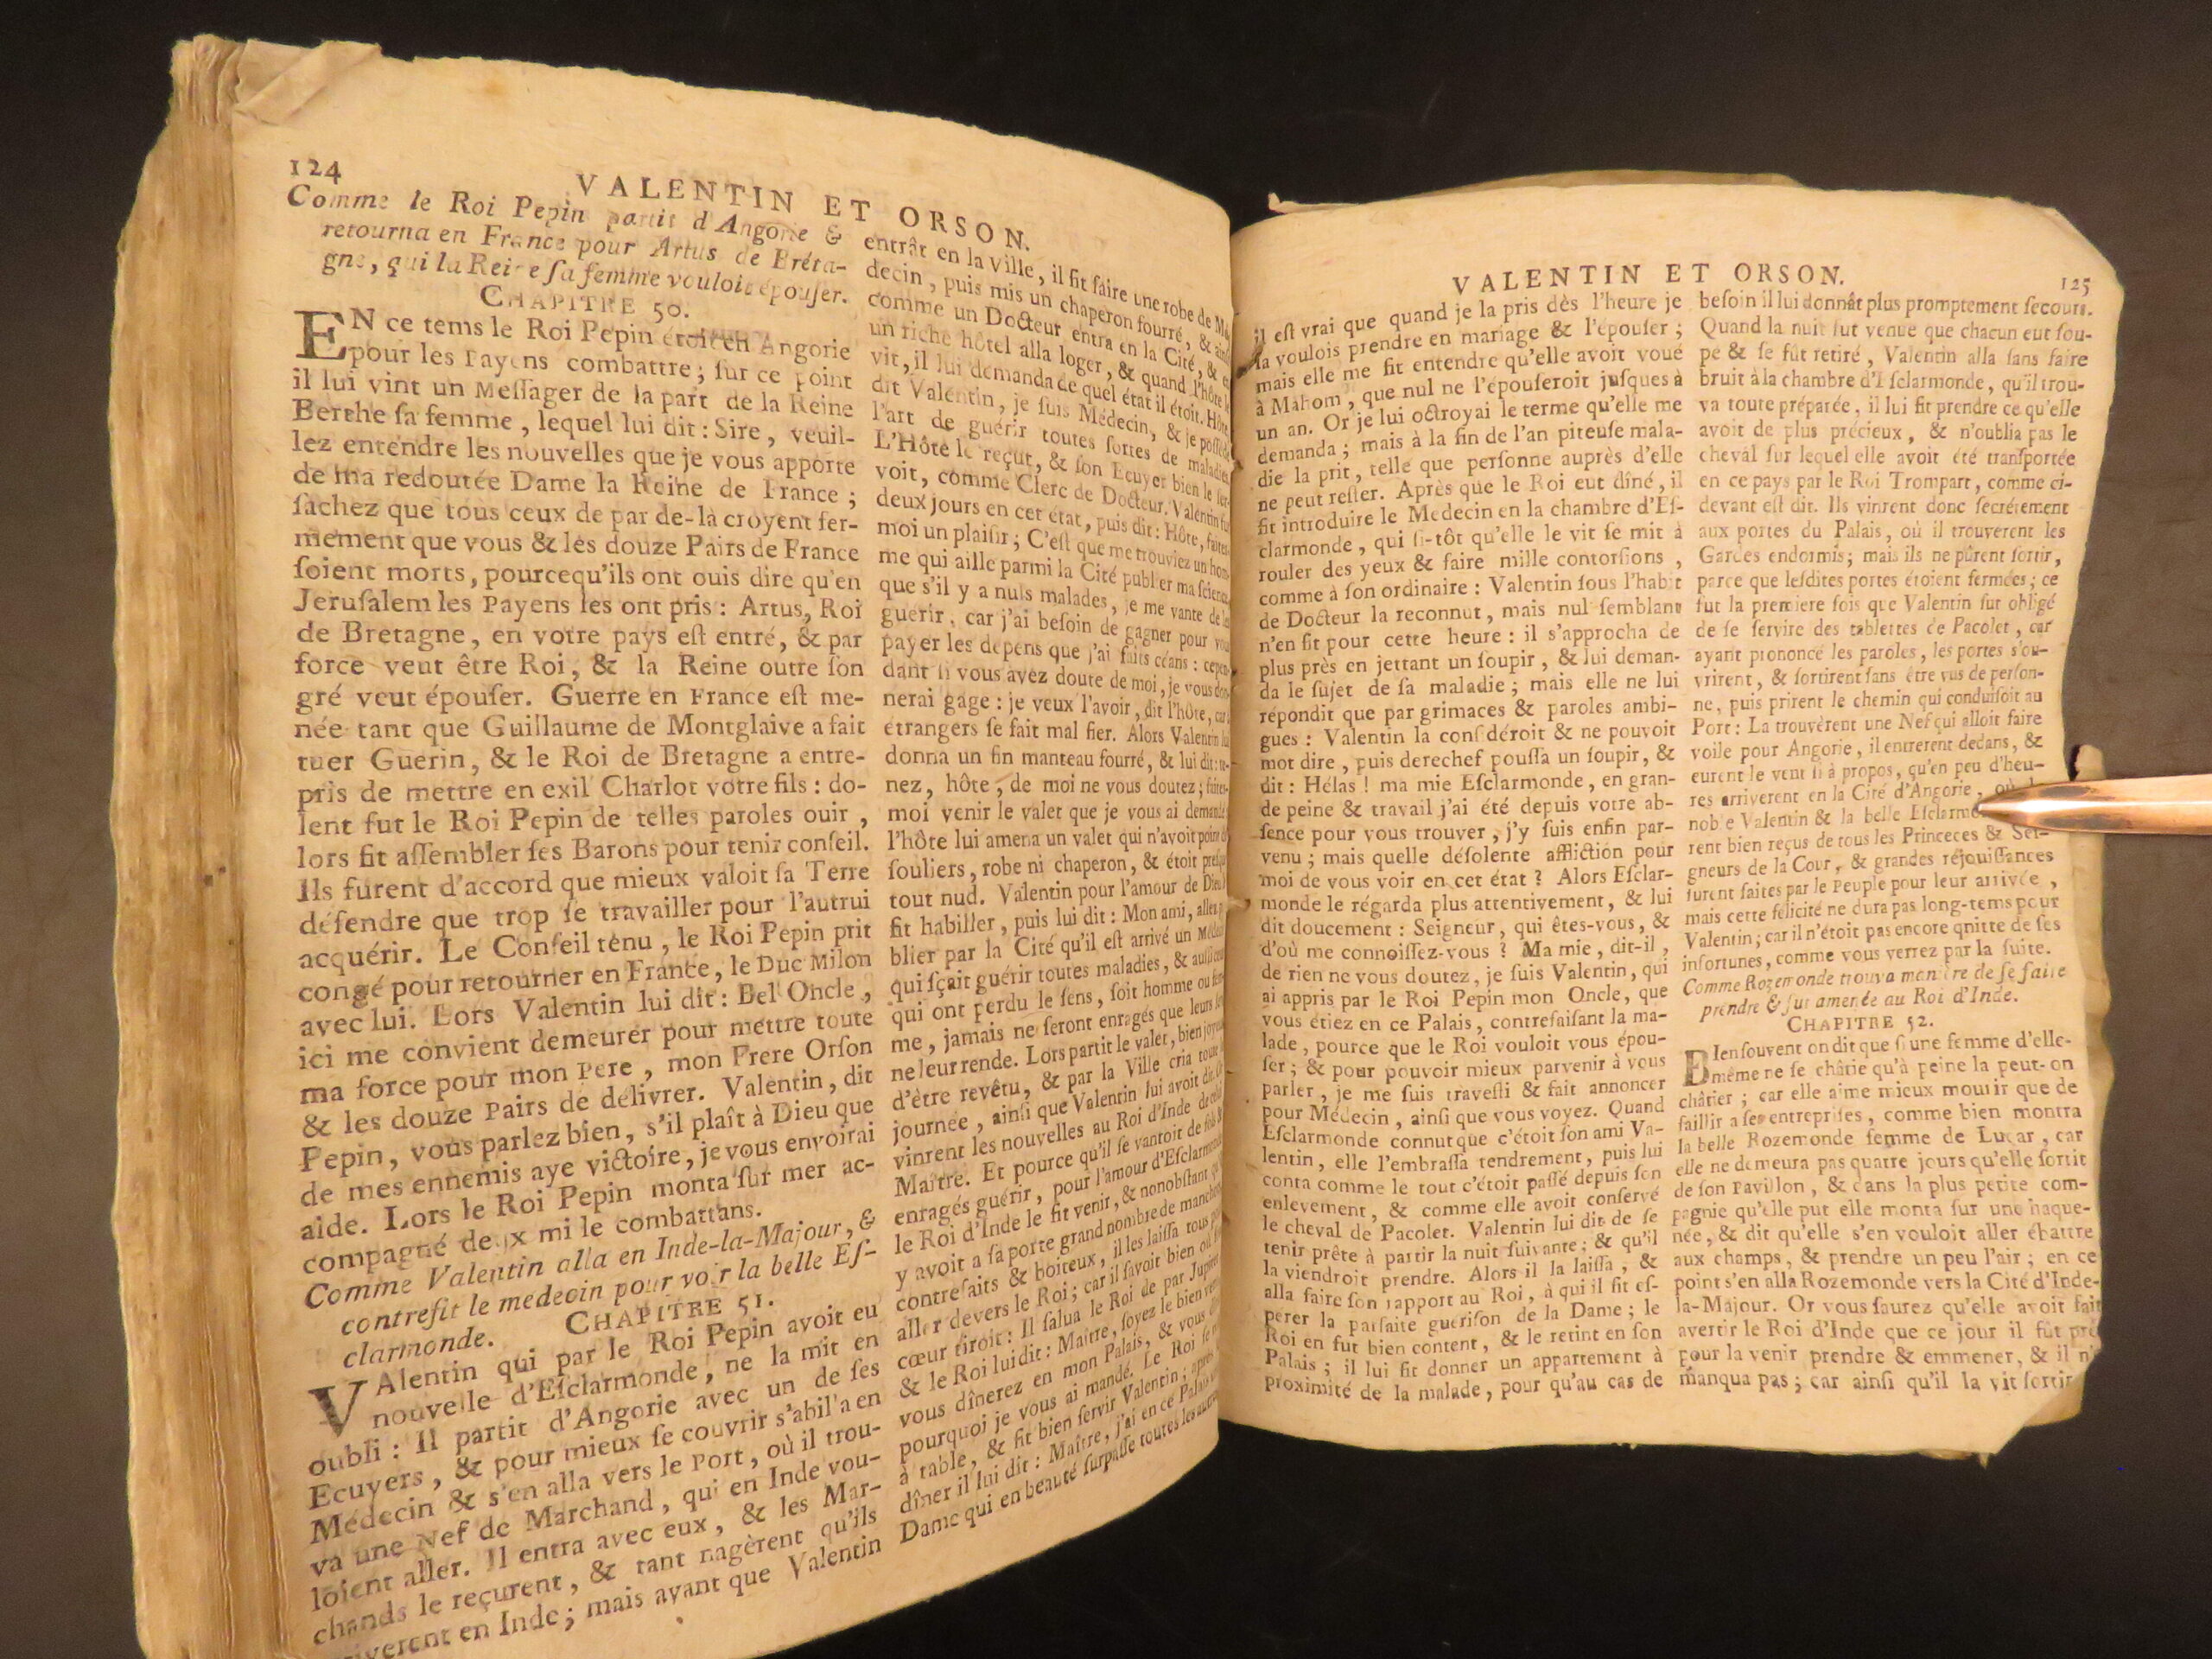 124
VALENTIN ET ORSON.
Comme le Roi Pepin partit d'Angorie &
retourna en France pour Artus de Bréta-
gne, qui la Reine ſa femme vouloit épouſer.
CHAPITRE 50.
EN ce tems le Roi Pepin étoit en Angorie
pour les Payens combattre; ſur ce point
il lui vint un Meſſager de la part de la Reine
Berthe ſa femme, lequel lui dit: Sire, veuil-
lez entendre les nouvelles que je vous apporte
de ma redoutée Dame la Reine de France;
ſachez que tous ceux de par de-là croyent fer-
mement que vous & les douze Pairs de France
ſoient morts, pourcequ'ils ont ouis dire qu'en
Jeruſalem les Payens les ont pris: Artus, Roi
de Bretagne, en votre pays eſt entré, & par
force veut être Roi, & la Reine outre ſon
gré veut épouſer. Guerre en France eſt me-
née tant que Guillaume de Montglaive a fait
tuer Guerin, & le Roi de Bretagne a entre-
pris de mettre en exil Charlot votre fils: do-
lent fut le Roi Pepin de telles paroles ouir,
lors fit aſſembler ſes Barons pour tenir conſeil.
Ils furent d'accord que mieux valoit ſa Terre
défendre que trop ſe travailler pour l'autrui
acquérir. Le Conſeil tenu, le Roi Pepin prit
congé pour retourner en France, le Duc Milon
avec lui. Lors Valentin lui dit: Bel Oncle,
ici me convient demeurer pour mettre toute
ma force pour mon Pere, mon Frere Orſon
& les douze Pairs de délivrer. Valentin, dit
Pepin, vous parlez bien, s'il plaît à Dieu que
de mes ennemis aye victoire, je vous envoirai
aide. Lors le Roi Pepin monta ſur mer ac-
compagné deux mille combattans.
Comme Valentin alla en Inde-la-Majour, &
contrefit le medecin pour voir la belle Eſ-
clarmonde. CHAPITRE 51.
VAlentin qui par le Roi Pepin avoit eu
nouvelle d'Eſclarmonde, ne la mit en
oubli: Il partit d'Angorie avec un de ſes
Ecuyers, & pour mieux ſe couvrir s'abil'a en
Médecin & s'en alla vers le Port, où il trou-
va une Nef de Marchand, qui en Inde vou-
loient aller. Il entra avec eux, & les Mar-
chands le reçurent, & tant nagèrent qu'ils
en Inde; mais avant que Valentin
entrât en la Ville, il fit faire une robe de
decin, puis mis un chaperon fourré, &
comme un Docteur entra en la Cité, &
un riche hôtel alla loger, & quand l'hôte
vit, il lui demanda de quel état il étoit. Hôte,
dit Valentin, je ſuis Médecin, & je
l'art de guérir toutes ſortes de maladies.
L'Hôte le reçut, & ſon Ecuyer bien le
voit, comme Clerc de Docteur. Valentin
deux jours en cet état, puis dit: Hôte, faites
moi un plaiſir; C'eſt que me trouviez un hom-
me qui aille parmi la Cité publier ma ſcience,
que s'il y a nuls malades, je me vante de
guerir, car j'ai beſoin de gagner pour
payer les dépens que j'ai faits céans: cepen-
dant ſi vous avez doute de moi, je vous don-
nerai gage: je veux l'avoir, dit l'hôte,
étrangers ſe fait mal fier. Alors Valentin
donna un fin manteau fourré, & lui dit: te-
nez, hôte, de moi ne vous doutez; faites
moi venir le valet que je vous ai demandé
l'hôte lui amena un valet qui n'avoit point
ſouliers, robe ni chaperon, & étoit preſque
tout nud. Valentin pour l'amour de Dieu
fit habiller, puis lui dit: Mon ami,
blier par la Cité qu'il eſt arrivé un
qui ſçait guérir toutes maladies, & auſſi
qui ont perdu le ſens, ſoit homme ou fem-
me, jamais ne ſeront enragés que leurs
ne leur rende. Lors partit le valet, bien joyeux
d'être revêtu, & par la Ville cria toute
journée, ainſi que Valentin lui avoit dit.
vinrent les nouvelles au Roi d'Inde de
Maître. Et pource qu'il ſe vantoit de
enragés guérir, pour l'amour d'Eſclarmonde
le Roi d'Inde le fit venir, & nonobſtant
y avoit a ſa porte grand nombre de
contrefaits & boiteux, il les laiſſa tous
aller devers le Roi; car il ſavoit bien où
cœur tiroit: Il ſalua le Roi de par Jupiter
& le Roi lui dit: Maître, ſoyez le bien
vous dînerez en mon Palais, & vous
pourquoi je vous ai mandé. Le Roi
à table, & fit bien ſervir Valentin; après
dîner il lui dit: Maître, j'ai en ce Palais
Dame qui en beauté ſurpaſſe toutes les
VALENTIN ET ORSON.
125
il eſt vrai que quand je la pris dès l'heure je
la voulois prendre en mariage & l'épouſer;
mais elle me fit entendre qu'elle avoit voué
à Mahom, que nul ne l'épouſeroit juſques à
un an. Or je lui octroyai le terme qu'elle me
demanda; mais à la fin de l'an piteuſe mala-
die la prit, telle que perſonne auprès d'elle
ne peut reſter. Après que le Roi eut dîné, il
fit introduire le Medecin en la chambre d'Eſ-
clarmonde, qui ſi-tôt qu'elle le vit ſe mit à
rouler des yeux & faire mille contorſions,
comme à ſon ordinaire: Valentin ſous l'habit
de Docteur la reconnut, mais nul ſemblant
n'en fit pour cette heure: il s'approcha de
plus près en jettant un ſoupir, & lui deman-
da le ſujet de ſa maladie; mais elle ne lui
répondit que par grimaces & paroles ambi-
gues: Valentin la conſidéroit & ne pouvoit
mot dire, puis derechef pouſſa un ſoupir, &
dit: Hélas! ma mie Eſclarmonde, en gran-
de peine & travail j'ai été depuis votre ab-
ſence pour vous trouver, j'y ſuis enfin par-
venu; mais quelle déſolente affliction pour
moi de vous voir en cet état? Alors Eſclar-
monde le régarda plus attentivement, & lui
dit doucement: Seigneur, qui êtes-vous, &
d'où me connoiſſez-vous? Ma mie, dit-il,
de rien ne vous doutez, je ſuis Valentin, qui
ai appris par le Roi Pepin mon Oncle, que
vous étiez en ce Palais, contrefaiſant la ma-
lade, pource que le Roi vouloit vous épou-
ſer; & pour pouvoir mieux parvenir à vous
parler, je me ſuis traveſti & fait annoncer
pour Médecin, ainſi que vous voyez. Quand
Eſclarmonde connut que c'étoit ſon ami Va-
lentin, elle l'embraſſa tendrement, puis lui
conta comme le tout c'étoit paſſé depuis ſon
enlevement, & comme elle avoit conſervé
le cheval de Pacolet. Valentin lui dit de ſe
tenir prête à partir la nuit ſuivante; & qu'il
la viendroit prendre. Alors il la laiſſa, &
alla faire ſon rapport au Roi, à qui il fit eſ-
perer la parfaite guériſon de la Dame; le
Roi en fut bien content, & le retint en ſon
Palais; il lui fit donner un appartement à
proximité de la malade, pour qu'au cas de
beſoin il lui donnât plus promptement ſecours.
Quand la nuit fut venue que chacun eut ſou-
pé & ſe fût retiré, Valentin alla ſans faire
bruit à la chambre d'Eſclarmonde, qu'il trou-
va toute préparée, il lui fit prendre ce qu'elle
avoit de plus précieux, & n'oublia pas le
cheval ſur lequel elle avoit été tranſportée
en ce pays par le Roi Trompart, comme ci-
devant eſt dit. Ils vinrent donc ſecrétement
aux portes du Palais, où il trouverent les
Gardes endormis; mais ils ne pûrent ſortir,
parce que leſdites portes étoient fermées; ce
fut la premiere fois que Valentin fut obligé
de ſe ſervire des tablettes de Pacolet, car
ayant prononcé les paroles, les portes s'ou-
vrirent, & ſortirent ſans être vus de perſon-
ne, puis prirent le chemin qui conduiſoit au
Port: La trouvèrent une Nef qui alloit faire
voile pour Angorie, il entrerent dedans, &
eurent le vent ſi à propos, qu'en peu d'heu-
res arriverent en la Cité d'Angorie,
noble Valentin & la belle
rent bien reçus de tous les Princeces & Sei-
gneurs de la Cour, & grandes réjouiſſances
furent faites par le Peuple pour leur arrivée,
mais cette félicité ne dura pas long-tems pour
Valentin; car il n'étoit pas encore qnitte de ſes
infortunes, comme vous verrez par la ſuite.
Comme Rozemonde trouva maniere de ſe faire
prendre & fut amenée au Roi d'Inde.
CHAPITRE 52.
BIen ſouvent on dit que ſi une femme d'elle-
même ne ſe châtie qu'à peine la peut-on
châtier; car elle aime mieux mourir que de
faillir a ſes entrepriſes, comme bien montra
la belle Rozemonde femme de Lucar, car
elle ne demeura pas quatre jours qu'elle ſortit
de ſon Pavillon, & dans la plus petite com-
pagnie qu'elle put elle monta ſur une haque-
née, & dit qu'elle s'en vouloit aller ébattre
aux champs, & prendre un peu l'air; en ce
point s'en alla Rozemonde vers la Cité d'Inde-
la-Majour. Or vous ſaurez qu'elle avoit fait
avertir le Roi d'Inde que ce jour il fût
pour la venir prendre & emmener, & il n'y
manqua pas; car ainſi qu'il la vit ſortir